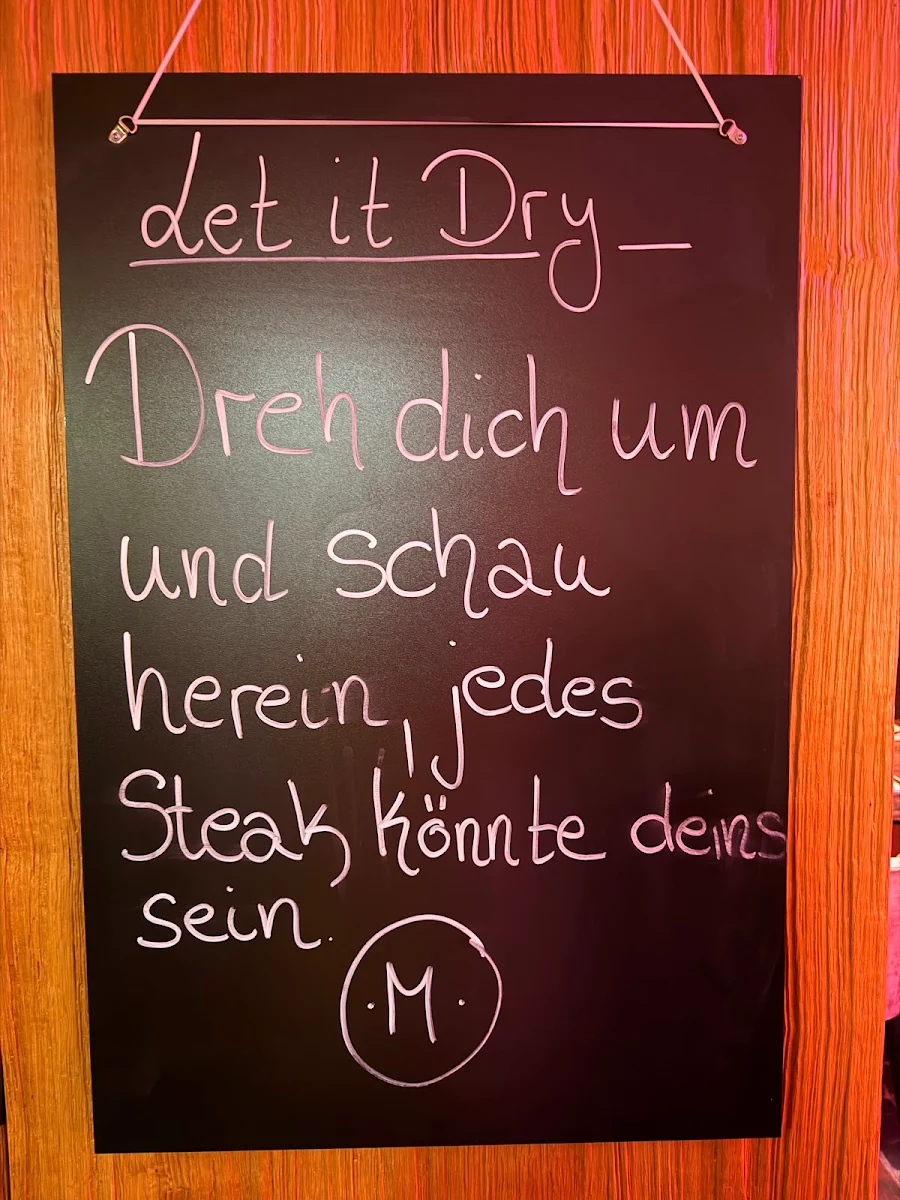 Let it Dry_
Dreh dich um
und schau
herein, jedes
Steak könnte deins
sein.
·M·